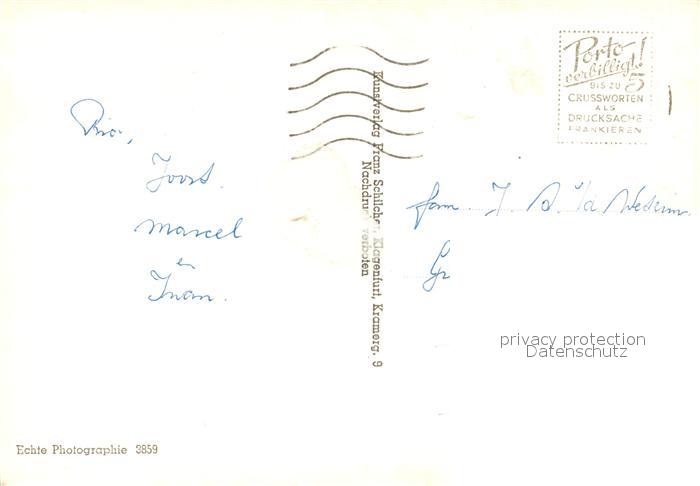 Ria,
Joost.
Marcel
en
Ivan.
Echte Photographie 3859
Kunstverlag Franz Schilcher, Klagenfurt, Kramerg. 9
Nachdruck verboten
Porto
verbilligt!
BIS ZU 5
GRUSSWORTEN
ALS
DRUCKSACHE
FRANKIEREN
fam. J.
privacy protection
Datenschutz